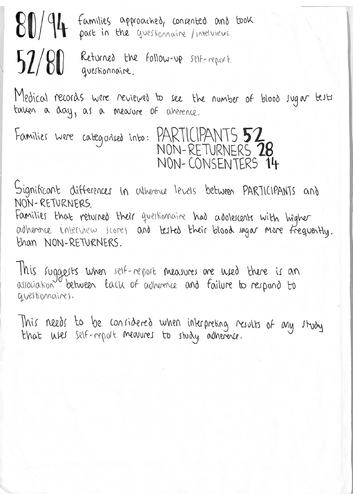 80/94 Families approached, consented and took
part in the questionnaire/interviews.
52/80 Returned the follow-up self-report
questionnaire.
Medical records were reviewed to see the number of blood sugar tests
taken a day, as a measure of aherence.
Families were categorised into: PARTICIPANTS 52
NON-RETURNERS 28
NON-CONSENTERS 14
Significant differences in adherence levels between PARTICIPANTS and
NON-RETURNERS.
Families that returned their questionnaire had adolescents with higher
adherence interview scores and tested their blood sugar more frequently.
than NON-RETURNERS.
This suggests when self-report measures are used there is an
association between lack of adherence and failure to respond to
questionnaires.
This needs to be considered when interpreting results of any study
that uses self-report measures to study adherence.